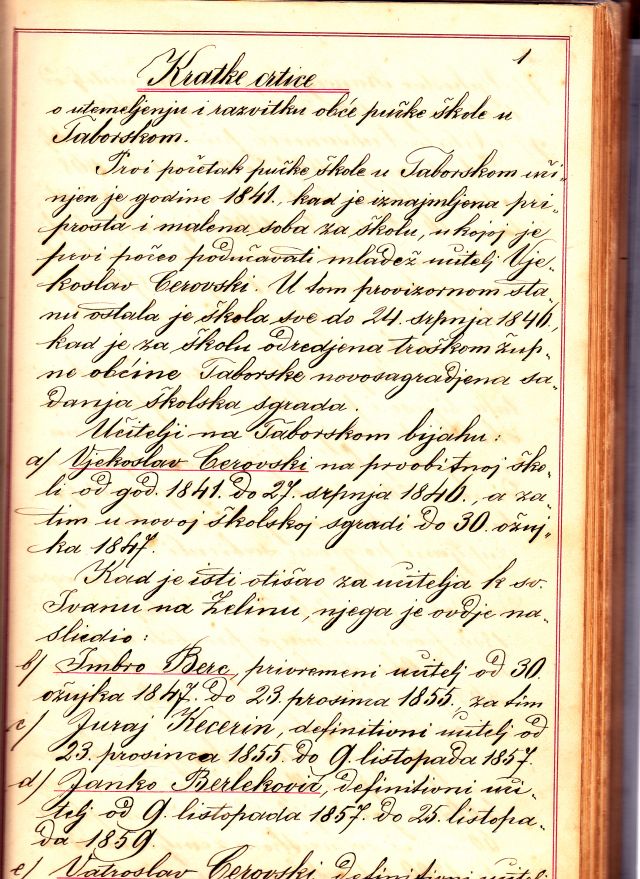 1
Kratke crtice
o utemeljenju i razvitku obće pučke škole u
Taborskom.
Prvi početak pučke škole u Taborskom uči-
njen je godine 1841., kad je iznajmljena pri-
prosta i malena soba za školu, u kojoj je
prvi počeo podučavati mladež učitelj Vje-
koslav Cerovski. U tom provizornom sta-
nu ostala je škola sve do 24. srpnja 1846.,
kad je za školu odredjena troškom žup-
ne občine Taborske novosagradjena sa-
danja školska sgrada.
Učitelji na Taborskom bijahu:
a/ Vjekoslav Cerovski na prvobitnoj ško-
li od god. 1841. do 27. srpnja 1846., a za-
tim u novoj školskoj sgradi do 30. ožuj-
ka 1847.
Kad je isti otišao za učitelja k sv.
Ivanu na Zelinu, njega je ovdje na-
sliedio:
b/ Imbro Berc, privremeni učitelj od 30.
ožujka 1847. do 23. prosinca 1855., za tim
c/ Juraj Kecerin, definitivni učitelj od
23. prosinca 1855. do 9. listopada 1857.
d/ Janko Berleković, definitivni uči-
telj od 9. listopada 1857. do 25. listopa-
da 1859.
e/ Vatroslav Cerovski, definitivni učitelj